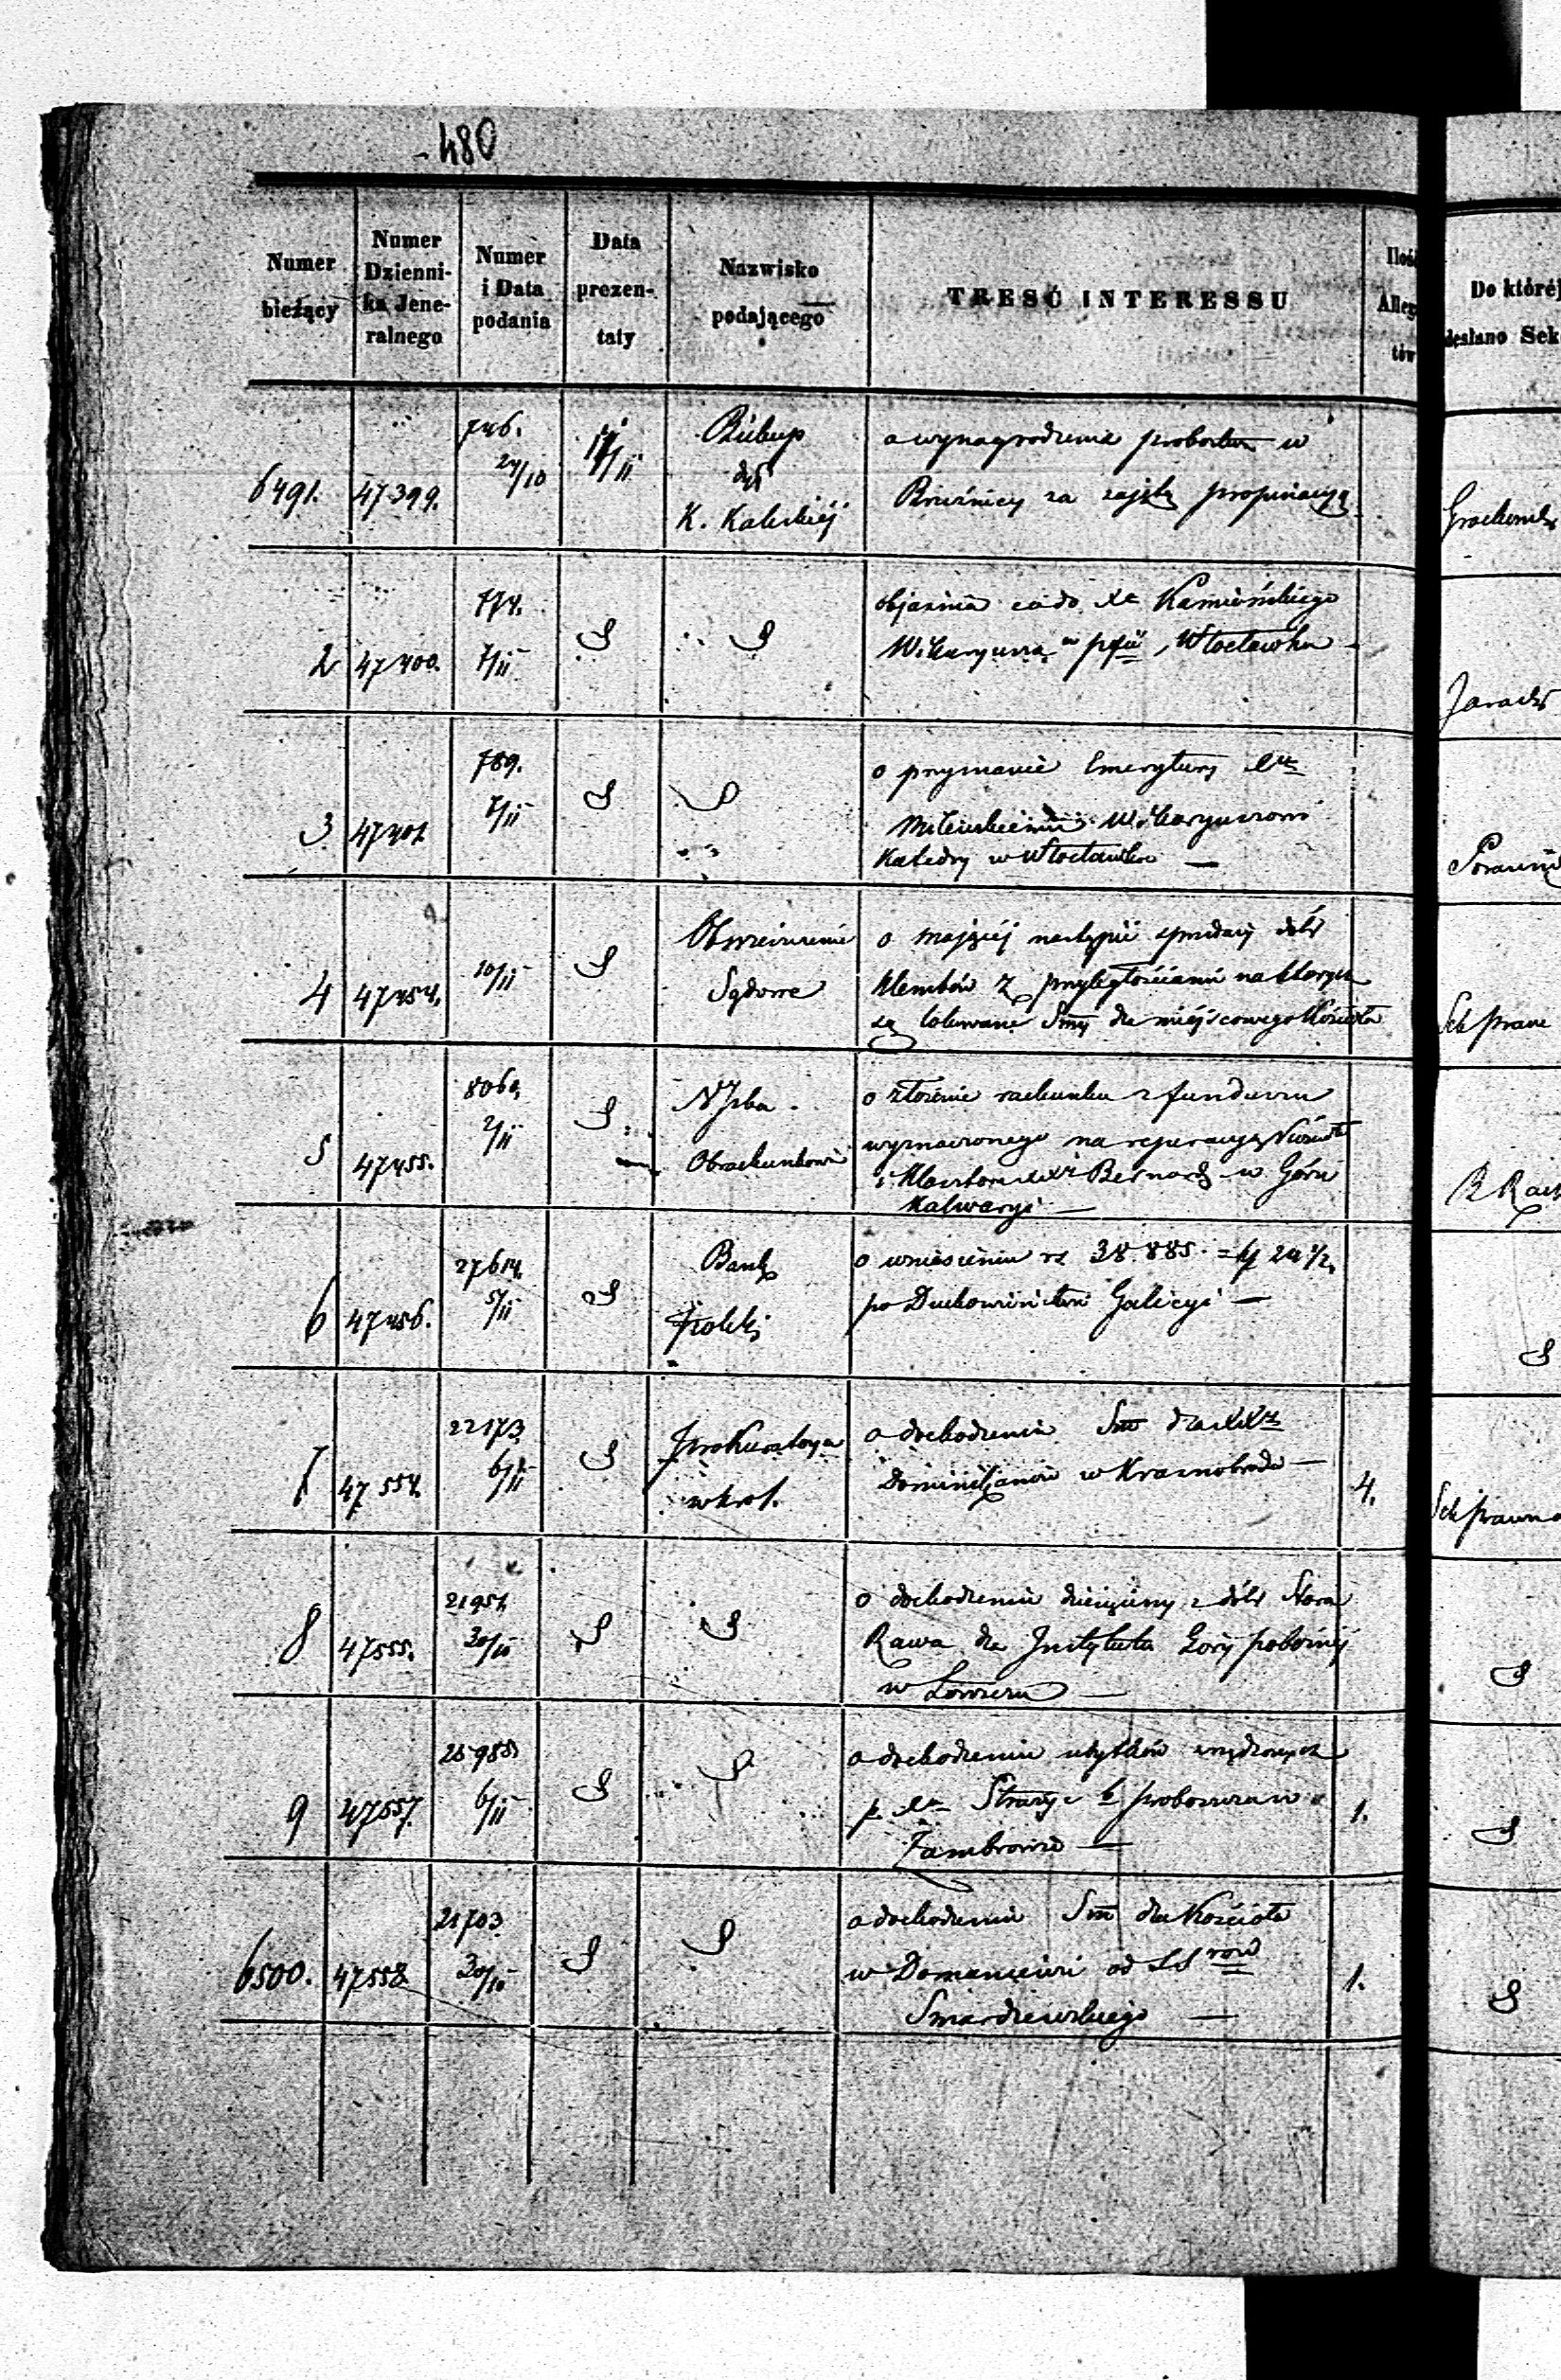 480
Numer bieżący
Numer Dzienni-ka Jene-ralnego
Numer i Data podania
Data prezen-taty
Nazwisko podającego
TREŚĆ INTERESSU
Ilość Alleg tów
Do któréj
desłano Sek
6491. 47399. 746. 24/10 Biskup
dyec
K. Kaliskiéj
o wynagrodzenie probostwa w
Brzeźnicy za zajętą propinacyą
2 47400. 774. 7/11
objaśnia co do Xa Kamieńskiego
Wikaryusza Włocławku
3 47401 789. 7/11
o przyznanie Emerytury
Wikaryuszowi
Katedry w Włocławku —
4 47454. 10/11 Obwieszczenie
Sądowe
o mającéj nastąpić sprzedaży dóbr
Klembów z przyległościami na których
są lokowane Smy dla miejscowego Kościoła
Sek prawn
5 47455. 8060. 2/11 N Izba
Obrachunkowa
o złożenie rachunku z funduszu
wyznaczonego na reperacyą Kościoła
i Klasztoru XX Bernard w Górze
Kalwaryi —
6 47456. 27614. 5/11 Bank
Polski
o wniesieniu rs 38.885. 24 1/2
po Duchowieństwie Galicyi —
7 47554. 22173 6/11 Prokuratorya
w Król.
o dochodzenie Sm dla XX
Dominikanów w Krasnobrodzie — 4.
8 47555. 21951. 30/10
o dochodzeniu dziesięciny z dóbr Stara
Rawa dla Instytutu Góry pobożnéj
w Łowiczu —
9 47557. 25985 6/11
o dochodzeniu użytków
p. Xa b. proboszcza w
Zambrowie — 1.
6500. 47558 21703 30/10
o dochodzenie Sm dla Kościoła
w Domaniewie od SSrów
Smardzewskiego — 1.